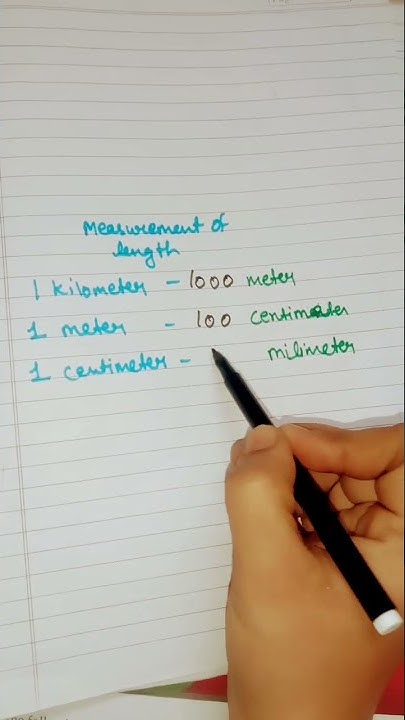 Measurement of
length
1 kilometer - 1000 meter
1 meter - 100 centimeter
1 centimeter - milimeter